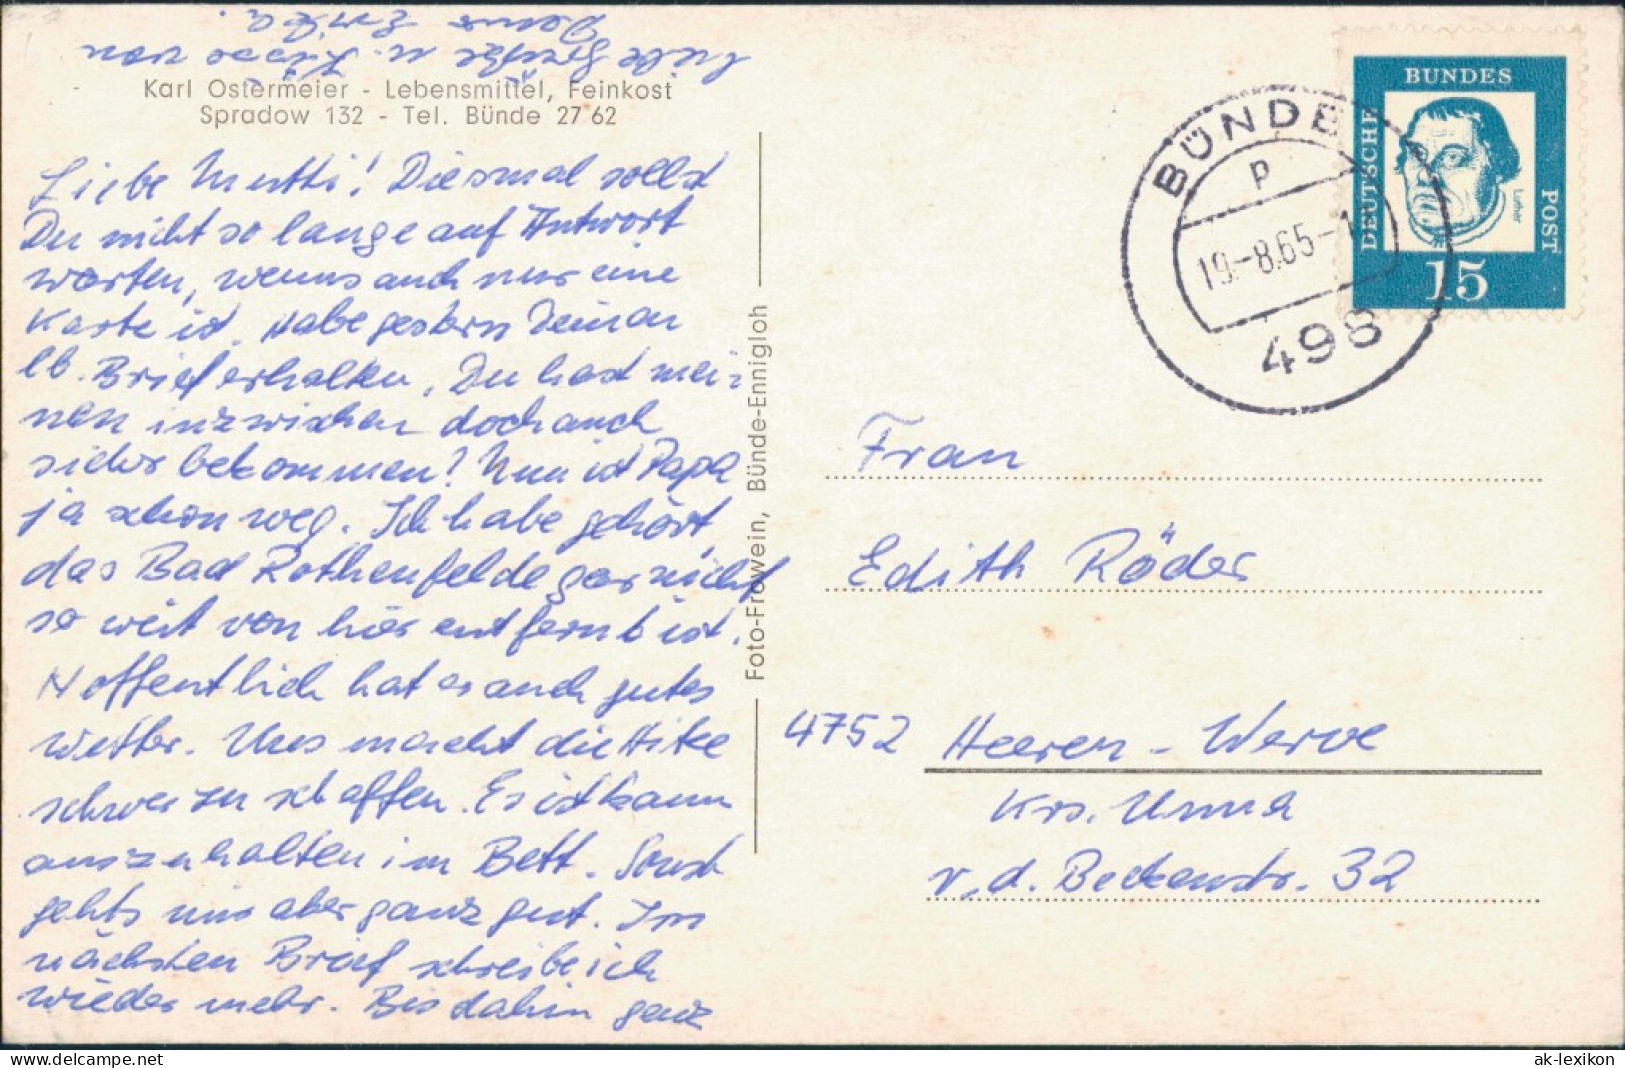 Karl Ostermeier - Lebensmittel, Feinkost
Spradow 132 - Tel. Bünde 27 62
Liebe Mutti! Diesmal sollst
Du nicht so lange auf Antwort
warten, wenns auch nur eine
Karte ist. Habe gestern Deinen
lb. Brief erhalten. Du hast mei-
nen inzwischen doch auch
sicher bekommen? Nun ist Papa
ja schon weg. Ich habe gehört,
das Bad Rothenfelde gar nicht
so weit von hier entfernt ist.
Hoffentlich hat er auch gutes
Wetter. Uns macht die Hitze
schwer zu schaffen. Es ist kaum
auszuhalten im Bett. Sonst
gehts uns aber ganz gut. Im
nächsten Brief schreibe ich
wieder mehr. Bis dahin ganz
viele Grüße u. Küsse von
Deiner Erika.
Foto-Frowein, Bünde-Ennigloh
BÜNDE
p
19.-8.65-1
498
DEUTSCHE BUNDES POST
Luther
15
Frau
Edith Röder
4752 Heeren-Werve
Krs. Unna
v. d. Beckenstr. 32
www.delcampe.net
ak-lexikon